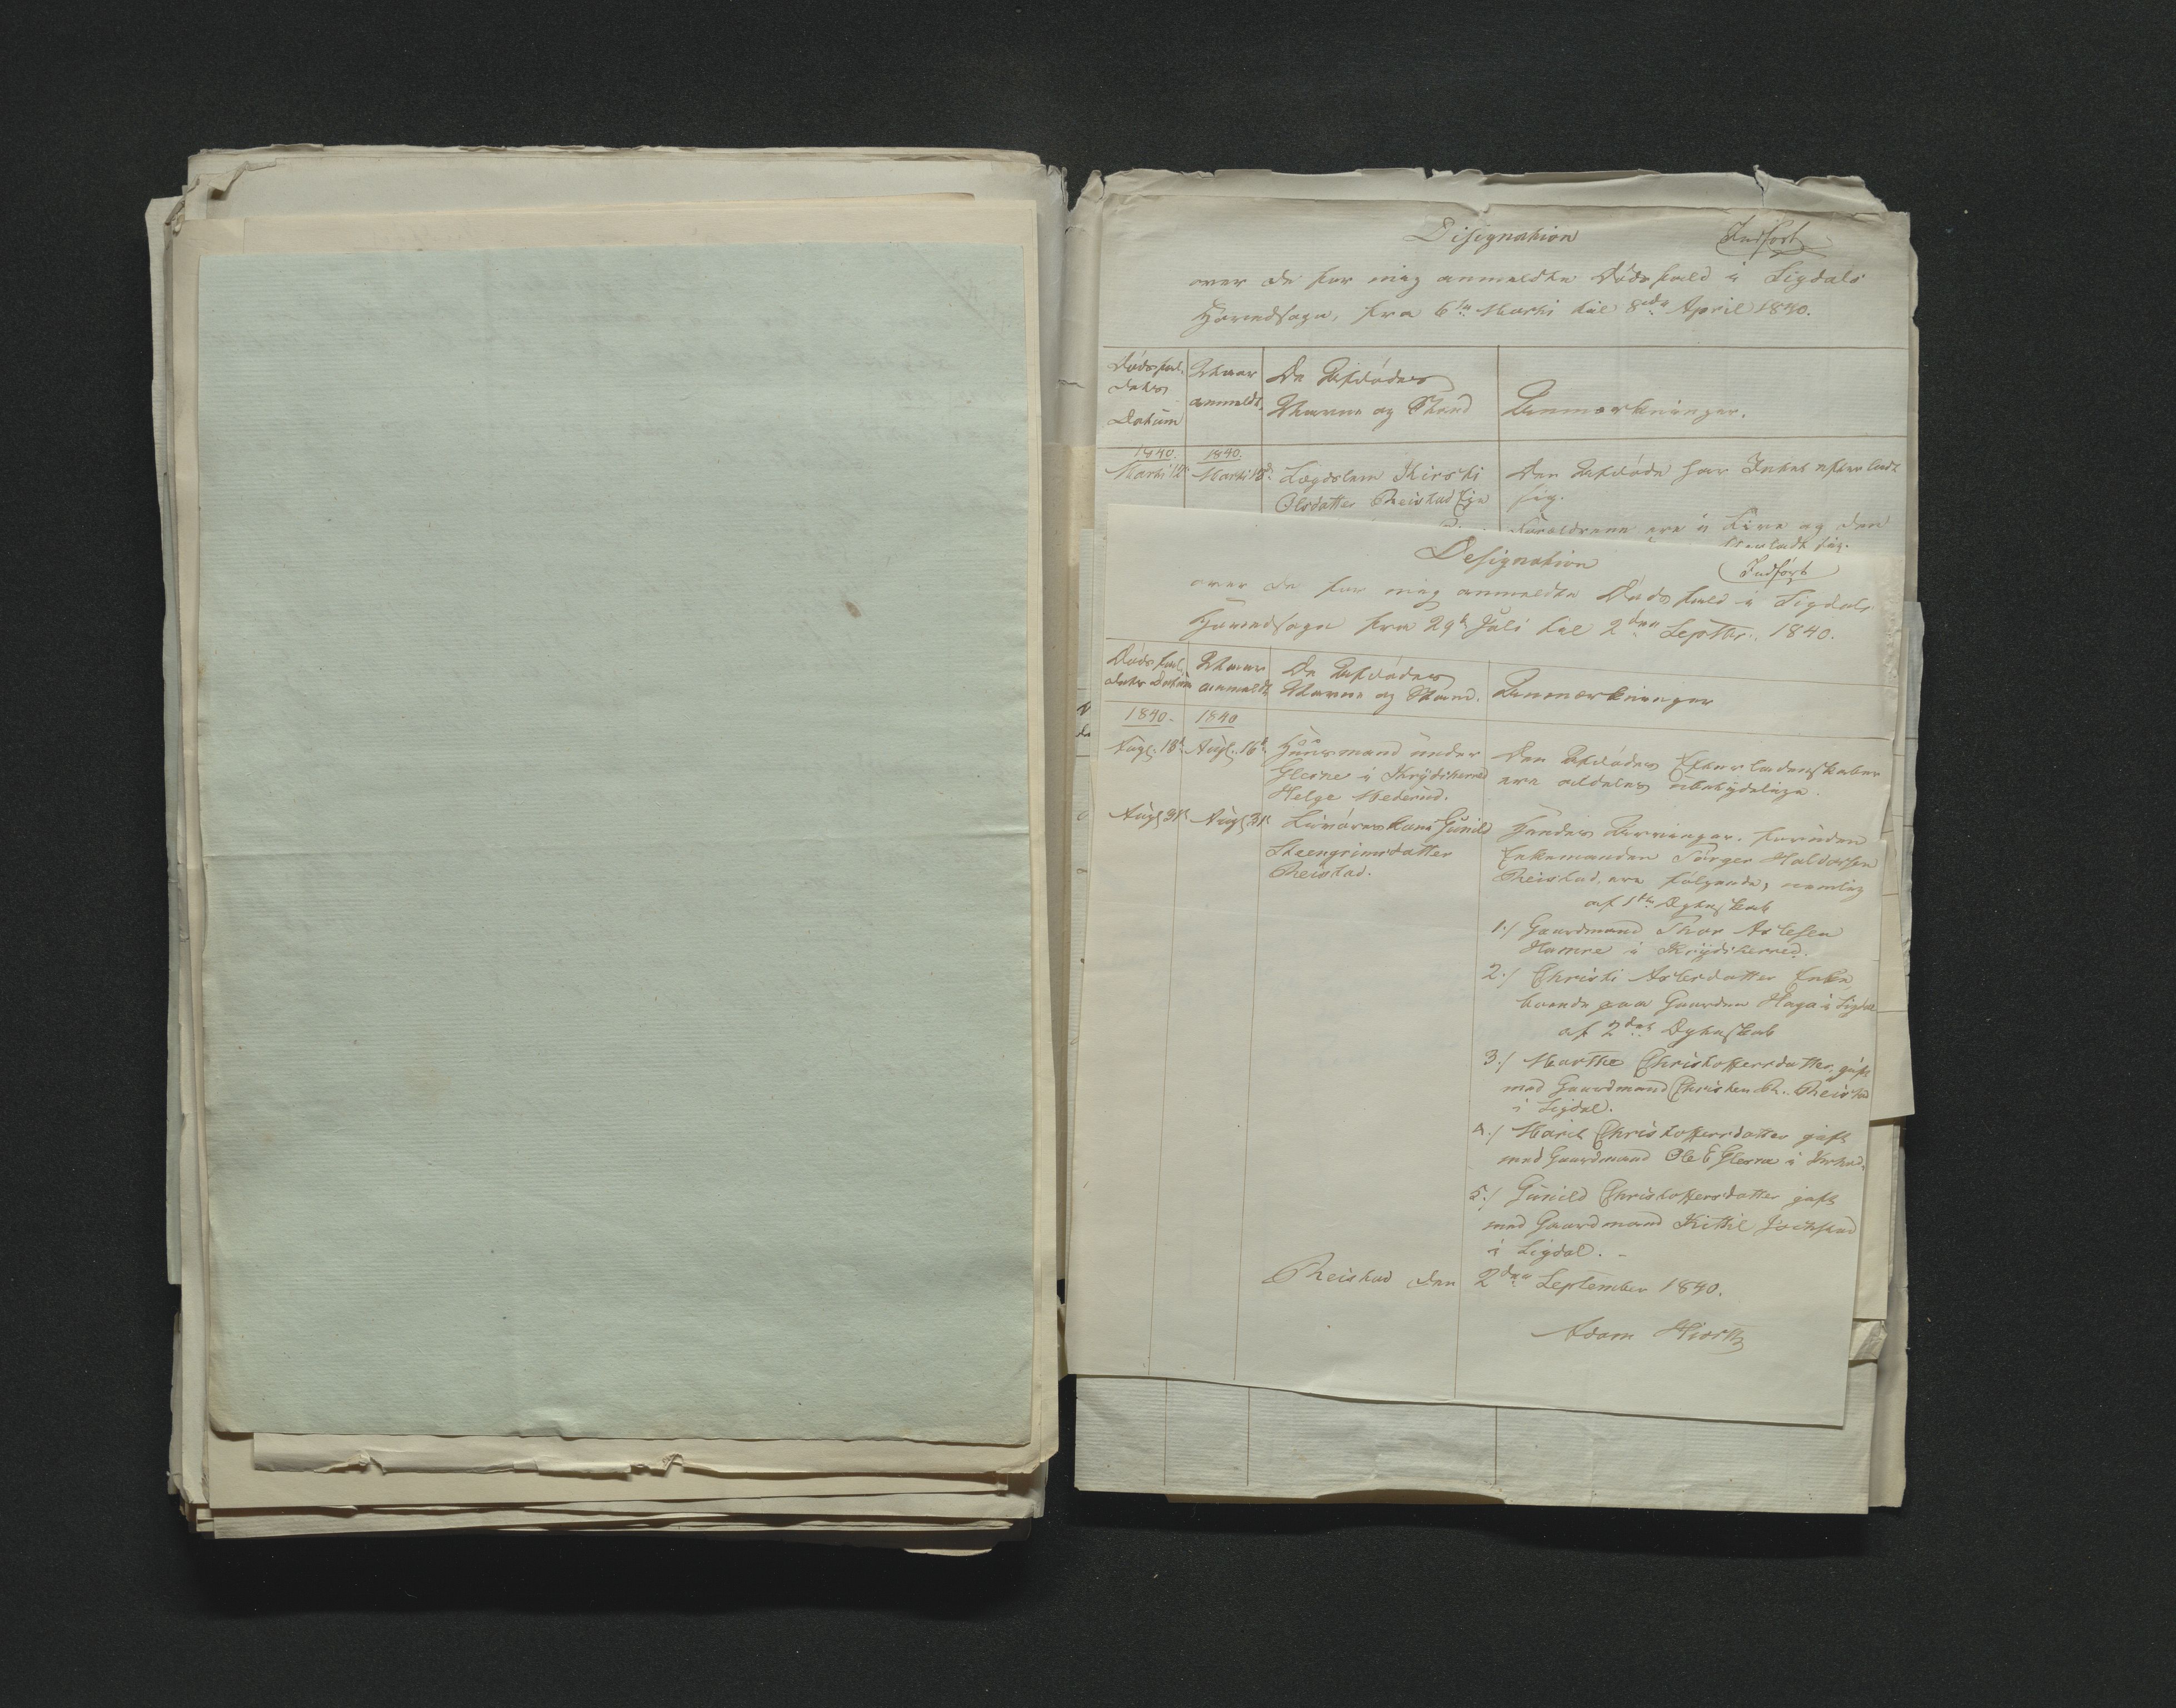 Designation
Indført
over de for mig anmeldte Dødsfald i Sigdals
Hovedsogn, fra 6te Marti til 8de April 1840.
Dødsfal-
dets
Datum
Naar
anmeldt.
De Afdødes
Navne og Stand
Anmærkninger.
1840.
1840.
Marti 12
Marti 13de
Lægdslem Kirsti
Olsdatter Reistad Eje
Den Afdøde har Intet efterladt
sig.
Forældrene ere i Live og den
efterladt sig.
Designation
Indført
over de for mig anmeldte Dødsfald i Sigdals
Hovedsogn fra 29de Juli til 2den Septbr. 1840.
Dødsfal-
dets Datum
Naar
anmeldt
De Afdødes
Navne og Stand.
Anmærkninger
1840.
1840
Augs. 13de
Augs. 16de
Huusmand under
Glesne i Krydsherred
Helge Mederud.
Den Afdødes Efterladenskaber
ere aldeles ubetydelige.
Augs 31te
Augs 31te
Livøreskone Gunild
Steengrimsdatter
Reistad.
Hendes Arvinger, foruden
Enkemanden Tørger Haldorsen
Reistad, ere følgende, nemlig
af 1ste Ægteskab
1./ Gaardmand Thor Aslesen
Hamre i Krydsherred.
2./ Christi Aslesdatter Enke,
boende paa Gaarden Haga i Sigdal
af 2det Ægteskab
3./ Marthe Christoffersdatter, gift
med Gaardmand Christen Ch. Reistad
i Sigdal.
4./ Marit Christoffersdatter gift
med Gaardmand Ole E Glesne i
5./ Gunild Christoffersdatter gift
med Gaardmand Kittil
i Sigdal. -
Reistad den 2den September 1840.
Adam Hiorth